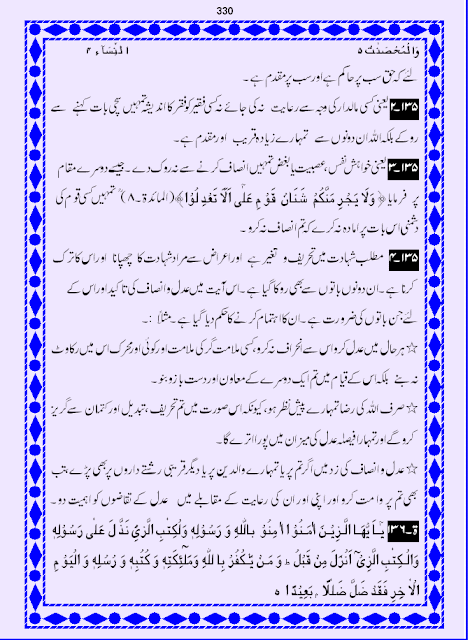 330
وَالْمُحْصَنٰت ۵ النِّسَآء ۴
لئے کہ حق سب پر حاکم ہے اور سب پر مقدم ہے۔
۱۳۵۔۲ یعنی کسی مالدار کی وجہ سے رعایت نہ کی جائے نہ کسی فقیر کو فقر کا اندیشہ تمہیں سچی بات کہنے سے
روکے بلکہ اللہ ان دونوں سے تمہارے زیادہ قریب اور مقدم ہے۔
۱۳۵۔۳ یعنی خواہش نفس، عصبیت یا بغض تمہیں انصاف کرنے سے نہ روک دے۔ جیسے دوسرے مقام
پر فرمایا ﴿وَلَا يَجْرِ مَنَّكُمْ شَنَاٰنُ قَوْمٍ عَلٰٓى اَلَّا تَعْدِلُوْا﴾ (المائدۃ۔۸) تمہیں کسی قوم کی
دشمنی اس بات پر امادہ نہ کرے کہ تم انصاف نہ کرو۔
۱۳۵۔۴ مطلب شہادت میں تحریف و تغیر ہے اور اعراض سے مراد شہادت کا چھپانا اور اس کا ترک
کرنا ہے۔ ان دونوں باتوں سے بھی روکا گیا ہے۔ اس آیت میں عدل و انصاف کی تاکید اور اس کے
لئے جن باتوں کی ضرورت ہے۔ ان کا اہتمام کرنے کا حکم دیا گیا ہے۔ مثلاً :۔
☆ ہر حال میں عدل کرو اس سے انحراف نہ کرو، کسی ملامت گر کی ملامت اور کوئی اور محرک اس میں رکاوٹ
نہ بنے بلکہ اس کے قیام میں تم ایک دوسرے کے معاون اور دست بازو بنو۔
☆ صرف اللہ کی رضا تمہارے پیش نظر ہو، کیونکہ اس صورت میں تم تحریف، تبدیل اور کتمان سے گریز
کرو گے اور تمہارا فیصلہ عدل کی میزان میں پورا اترے گا۔
☆ عدل و انصاف کی زد میں اگر تم پر یا تمہارے والدین پر یا دیگر قریبی رشتے داروں پر بھی پڑے، تب
بھی تم پروا مت کرو اور اپنی اور ان کی رعایت کے مقابلے میں عدل کے تقاضوں کو اہمیت دو۔
ق۔۱۳۶ يٰٓاَيُّهَا الَّذِيْنَ اٰمَنُوْٓا اٰمِنُوْا بِاللّٰهِ وَ رَسُوْلِهٖ وَالْكِتٰبِ الَّذِيْ نَزَّلَ عَلٰى رَسُوْلِهٖ
وَالْكِتٰبِ الَّذِيْٓ اَنْزَلَ مِنْ قَبْلُ ط وَ مَنْ يَّكْفُرْ بِا للّٰهِ وَمَلٰٓئِكَتِهٖ وَ كُتُبِهٖ وَ رُسُلِهٖ وَ الْيَوْمِ
الْاٰ خِرِ فَقَدْ ضَلَّ ضَلٰلًا ۢ بَعِيْدًا ه